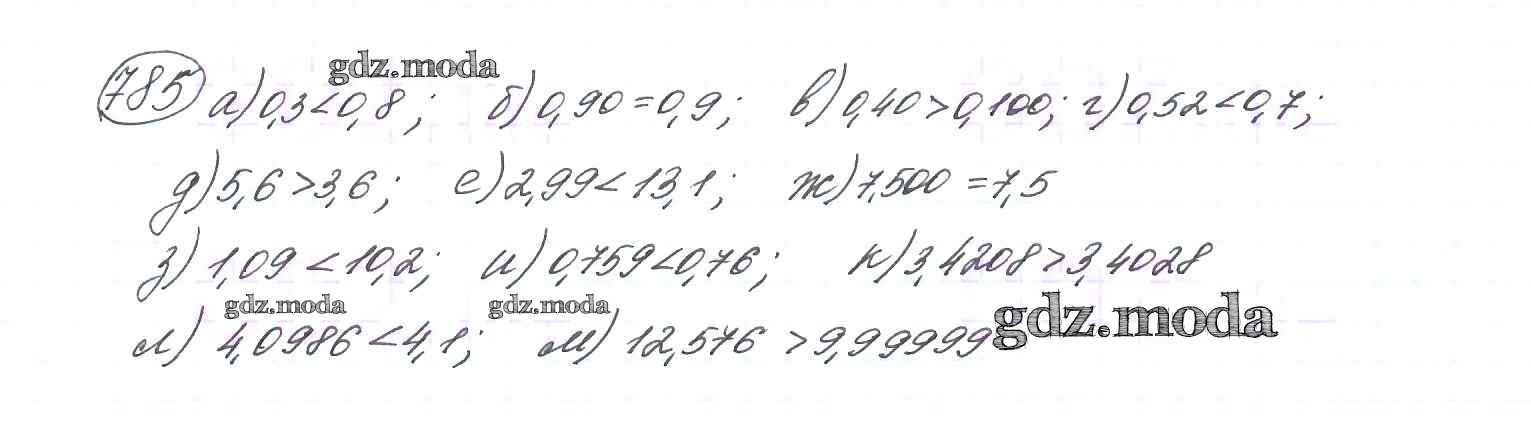 gdz.moda
785 а) 0,3<0,8; б) 0,90=0,9; в) 0,40>0,100; г) 0,52<0,7;
д) 5,6>3,6; е) 2,99<13,1; ж) 7,500=7,5
з) 1,09<10,2; и) 0,759<0,76; к) 3,4208>3,4028
gdz.moda gdz.moda gdz.moda
л) 4,0986<4,1; м) 12,576>9,99999